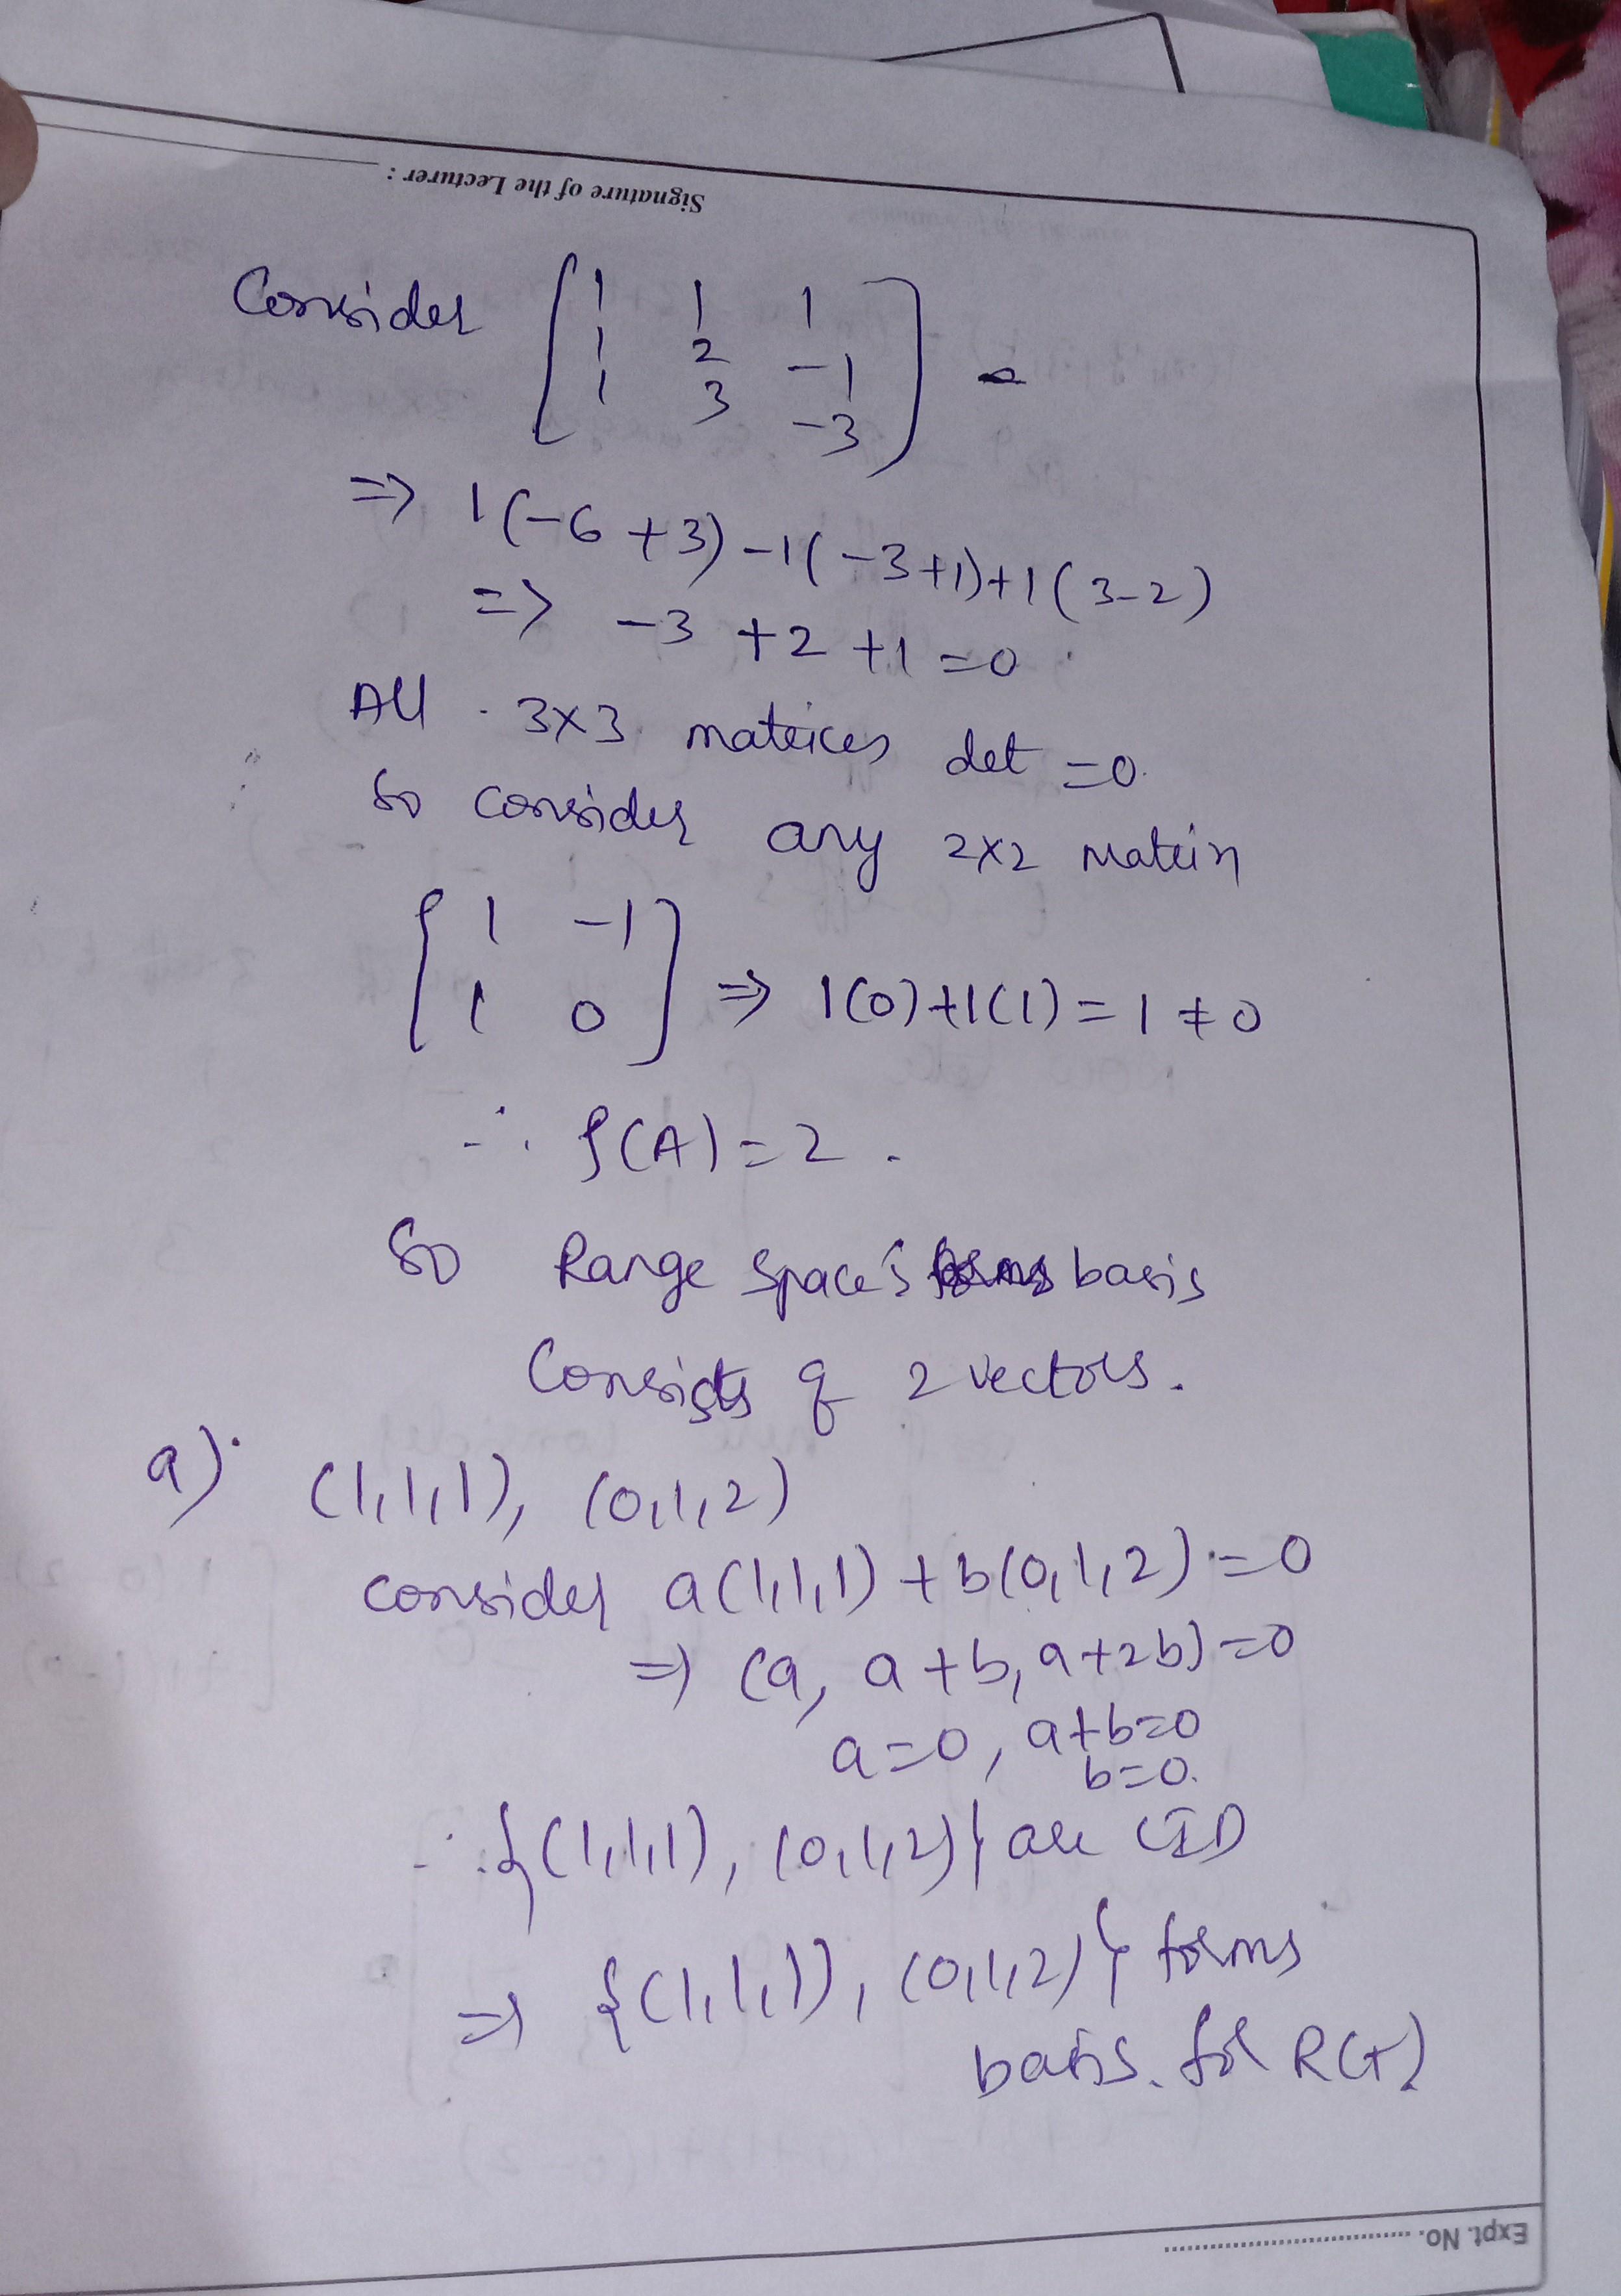 Signature of the Lecturer :
Consider [ 1 1 1
1 2 -1
1 3 -3 ]
=> 1(-6+3) -1(-3+1)+1(3-2)
=> -3 +2 +1 =0
All 3x3 matrices det =0.
So consider any 2x2 matrix
[ 1 -1
1 0 ] => 1(0)+1(1) = 1 ≠ 0
∴ ρ(A) = 2.
So Range space's basis
Consists of 2 vectors.
a). (1,1,1), (0,1,2)
consider a(1,1,1) + b(0,1,2) = 0
=> (a, a+b, a+2b) = 0
a=0, a+b=0
b=0.
∴ {(1,1,1), (0,1,2)} are LID
=> {(1,1,1), (0,1,2)} forms
basis. for R(T)
Expt. No. ..............................